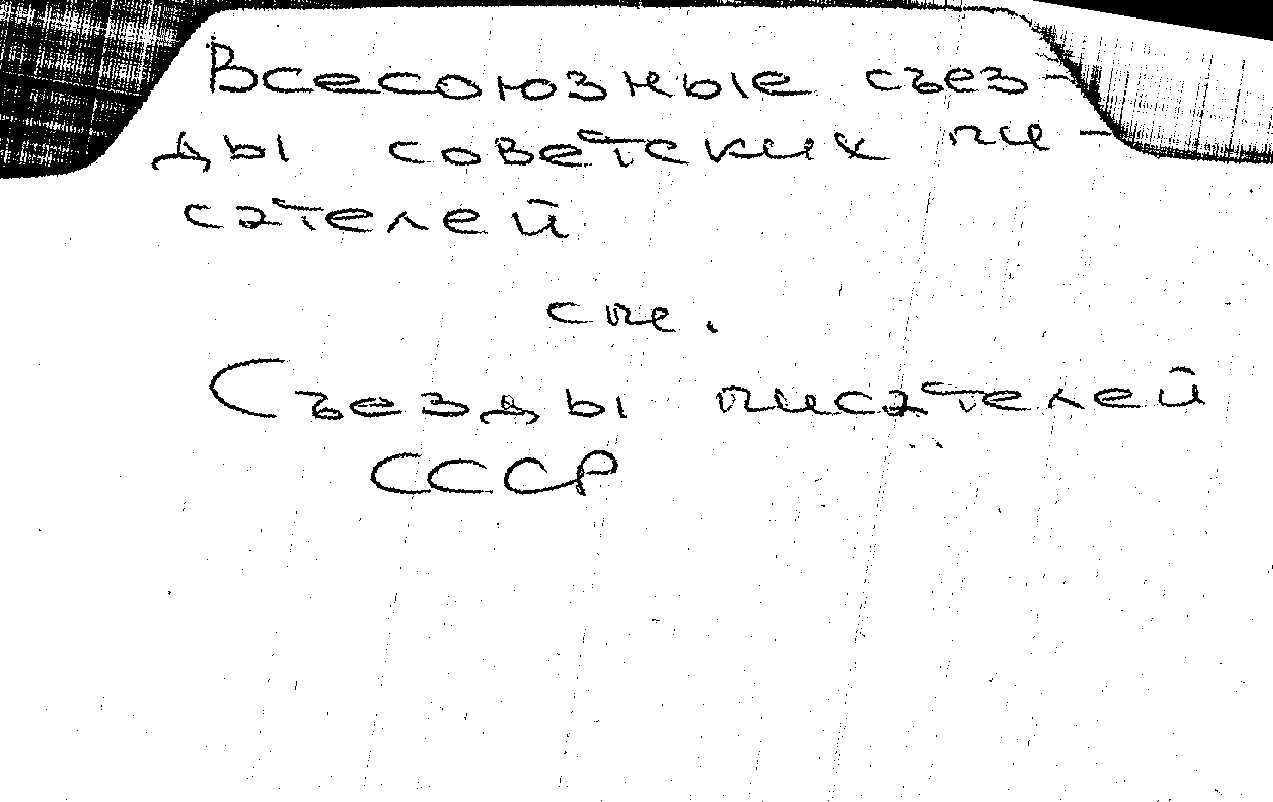 Всесоюзные съез-
ды советских пи-
сателей
см.
Съезды писателей
СССР